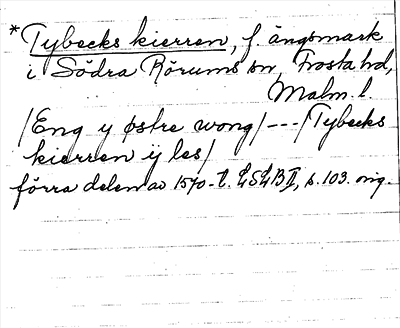 *Tybecks kierren, f. ängsmark
i Södra Rörums sn, Frosta hd,
Malm. l.
/Eng y østre wong/ --- /Tybecks
kierren ij les/
förra delen av 1570-t. LSLB II, s. 103. orig.